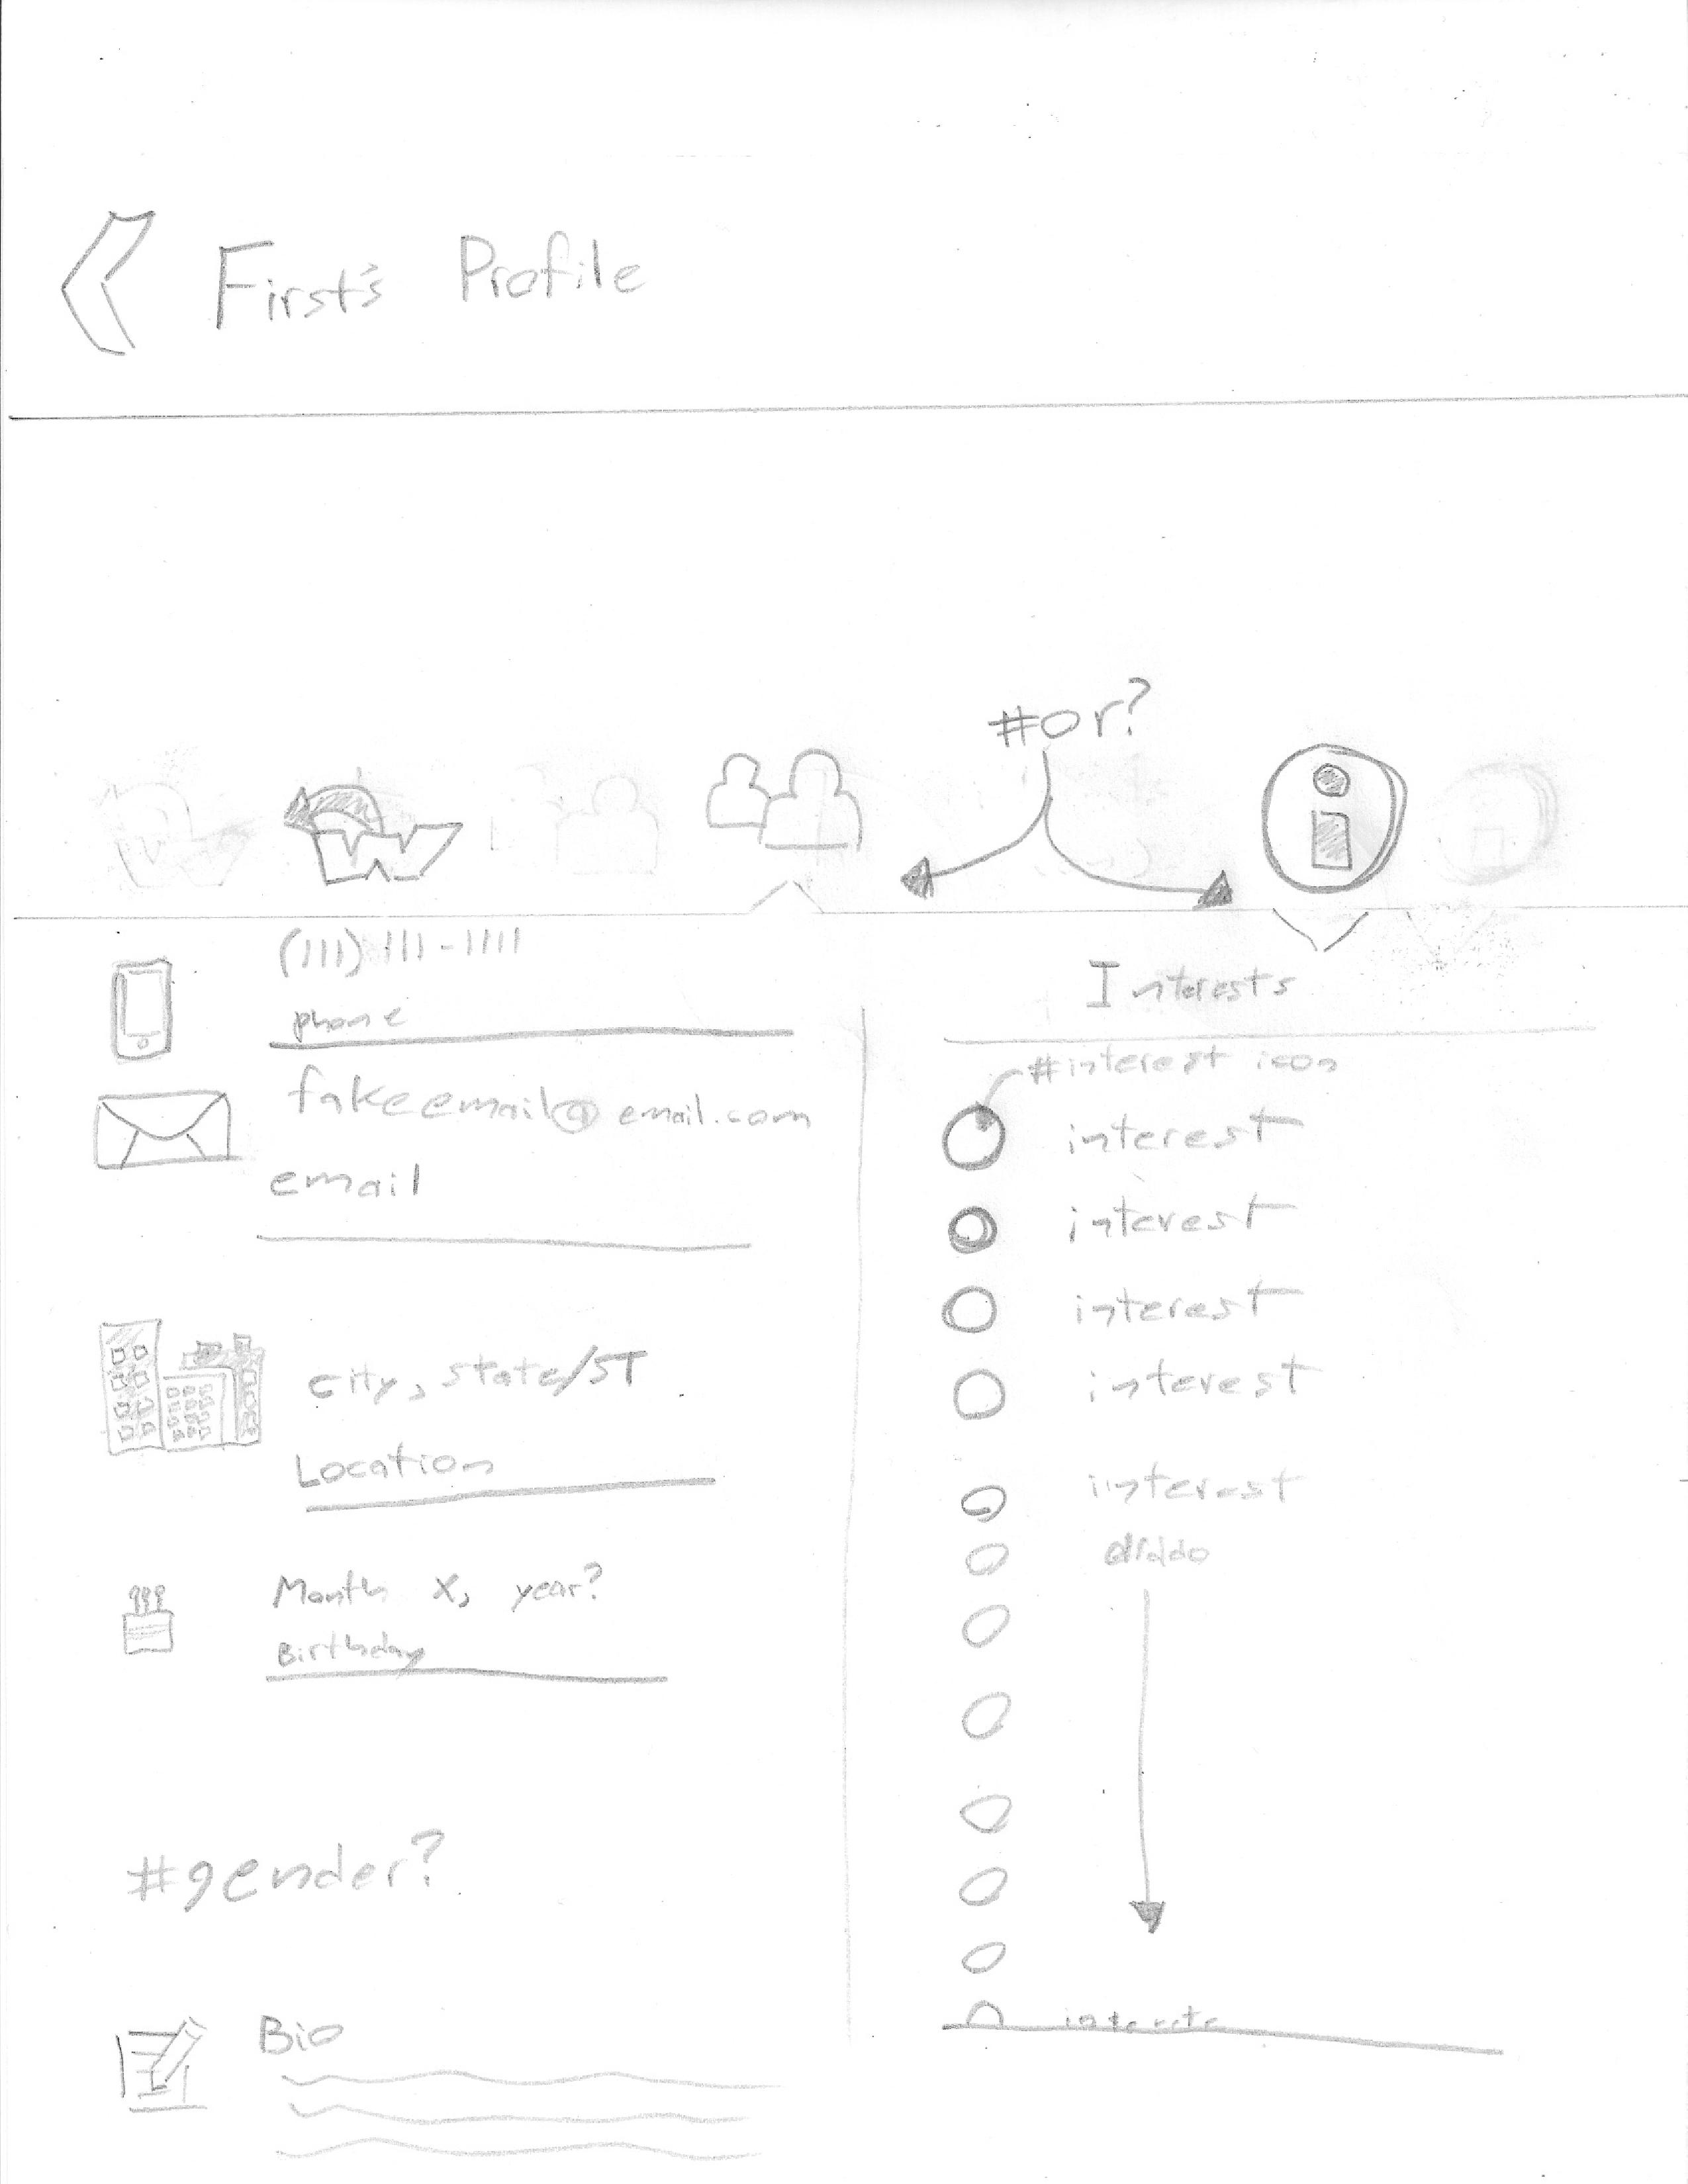 First's Profile
#or?
W
i
(111) 111-1111
phone
fakeemail@email.com
email
city, state/ST
Location
Month X, year?
Birthday
#gender?
Bio
Interests
#interest icon
interest
interest
interest
interest
interest